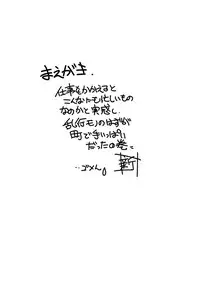 まえがき.
仕事をかかえると
こんなにも忙しいもの
なのかと実感し、
乱何モノのはずが
町で手いっぱい
だったの巻。
…ゴメん。